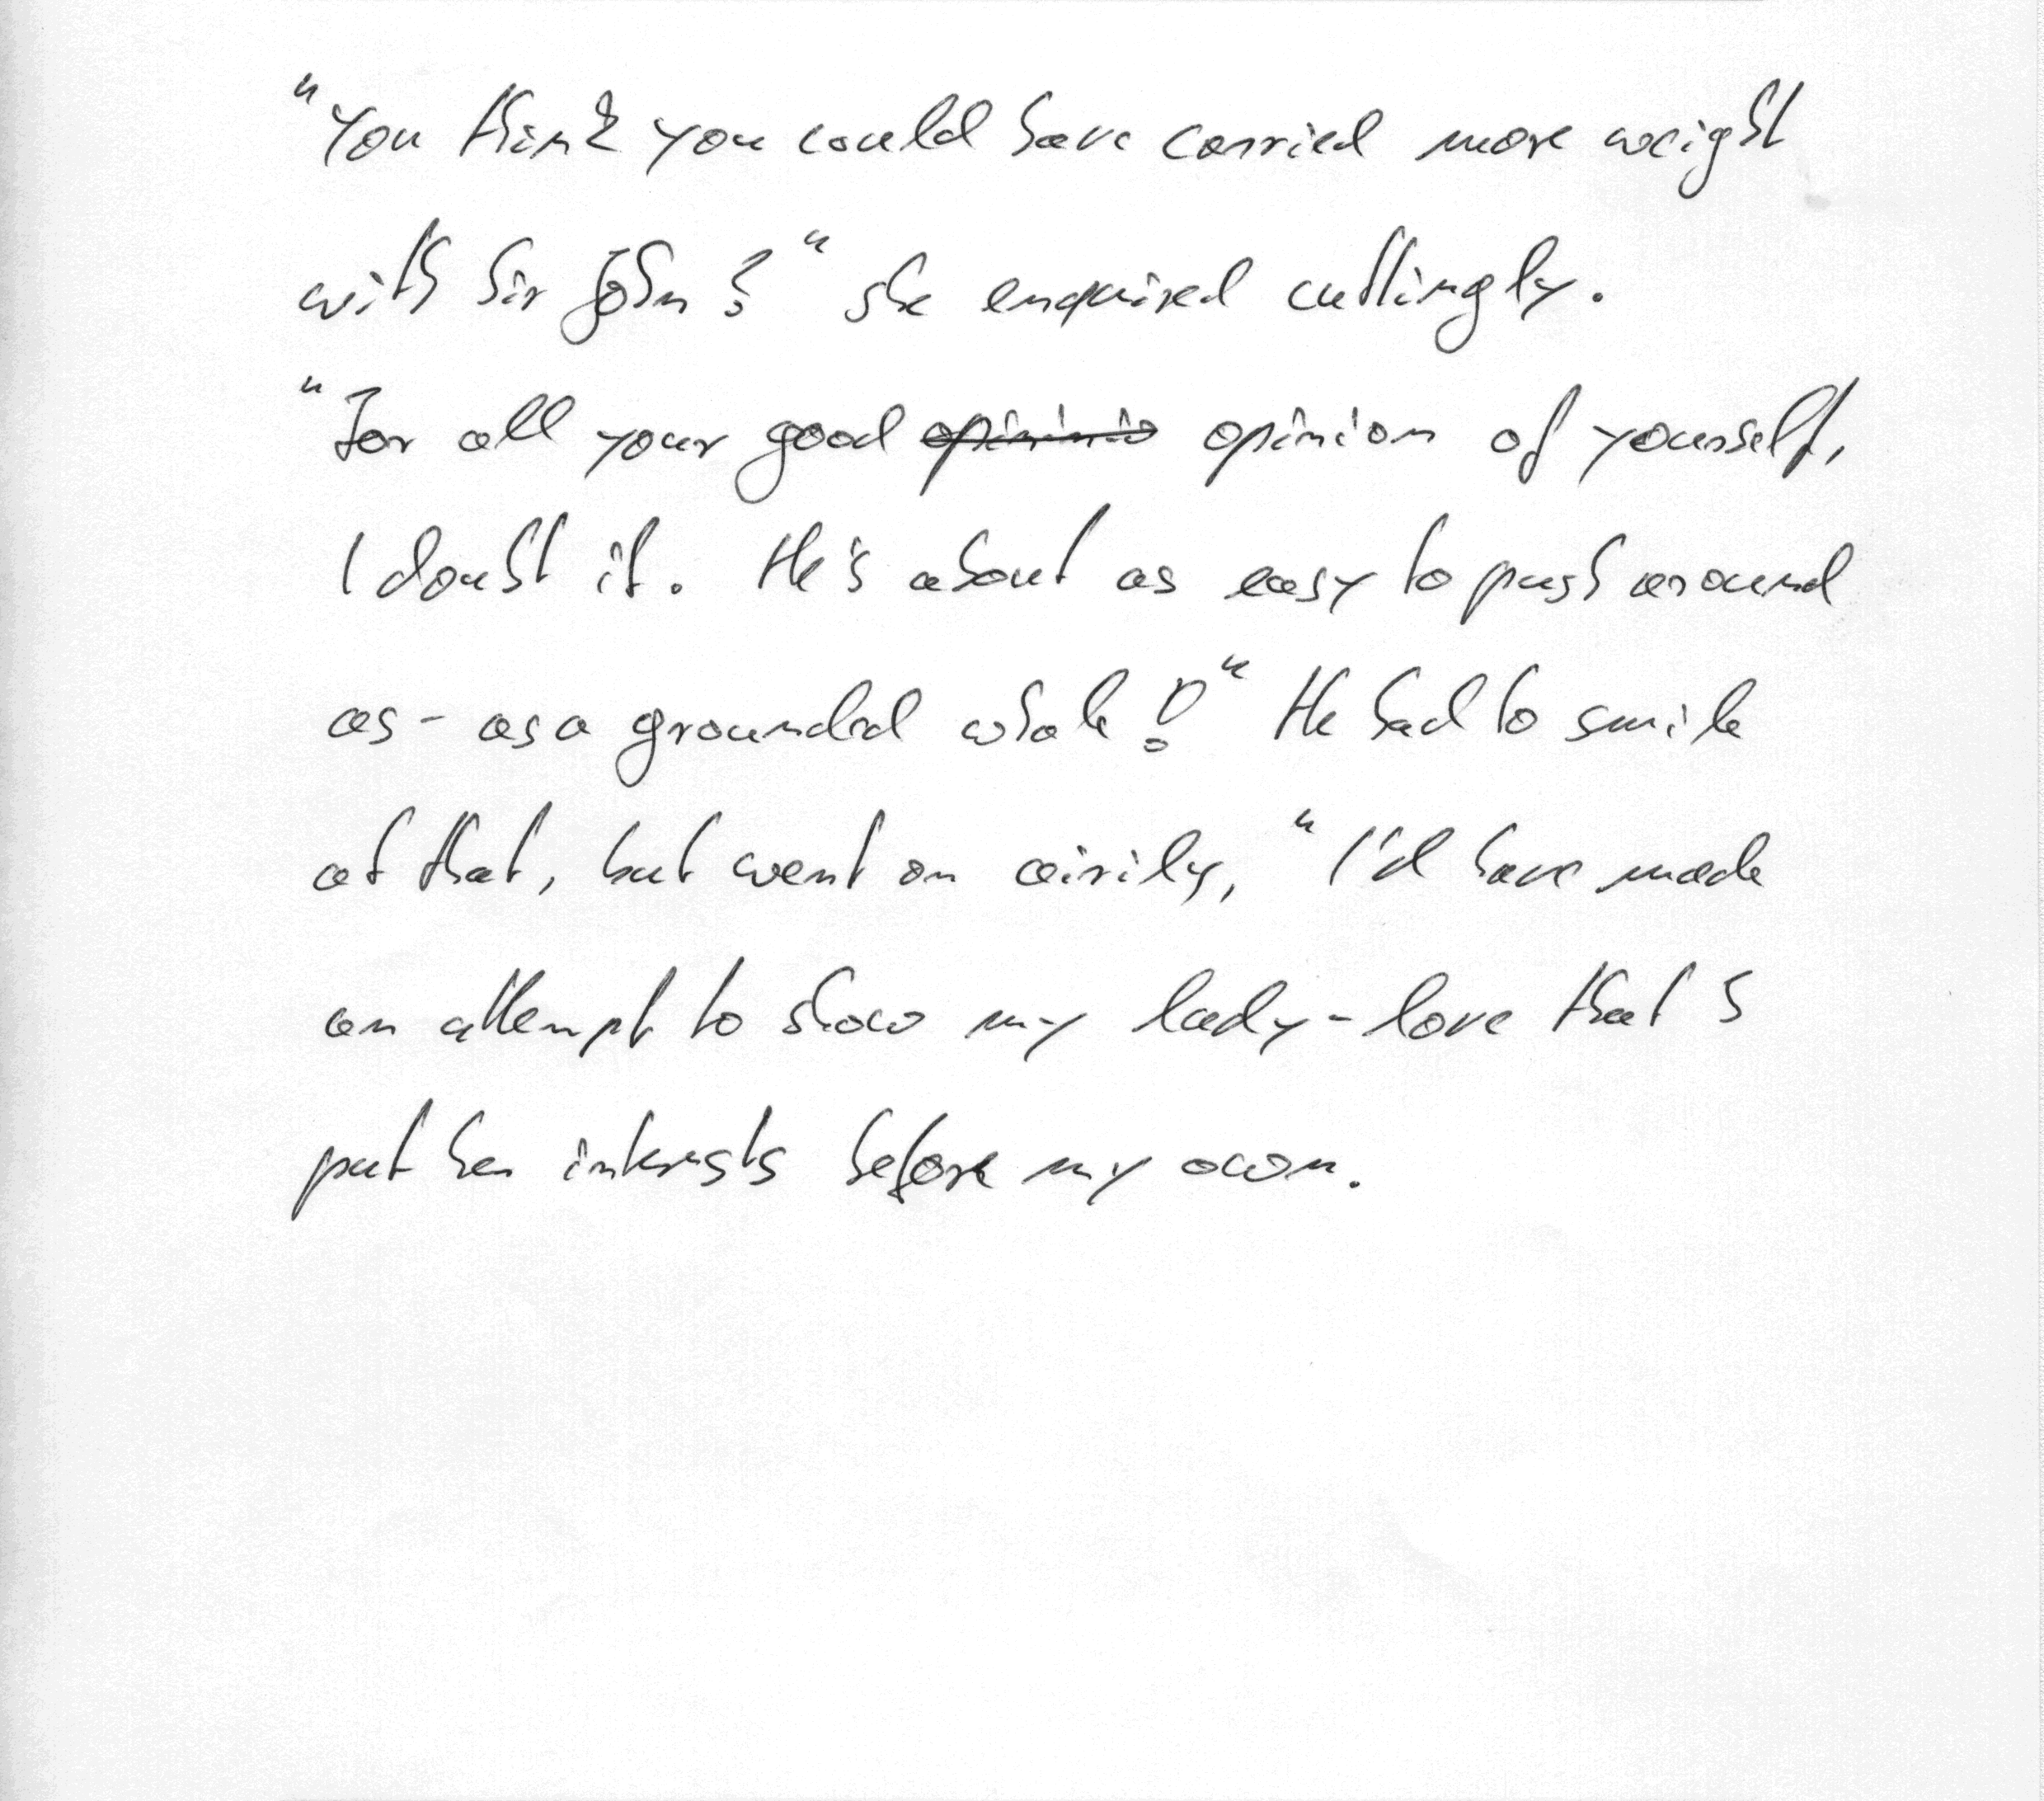 "You think you could have carried more weight
with Sir John?" she enquired cuttingly.
"For all your good opininio opinion of yourself,
I doubt it. He's about as easy to push around
as - as a grounded whale!" He had to smile
at that, but went on airily, "I'd have made
an attempt to show my lady-love that I
put her interests before my own.